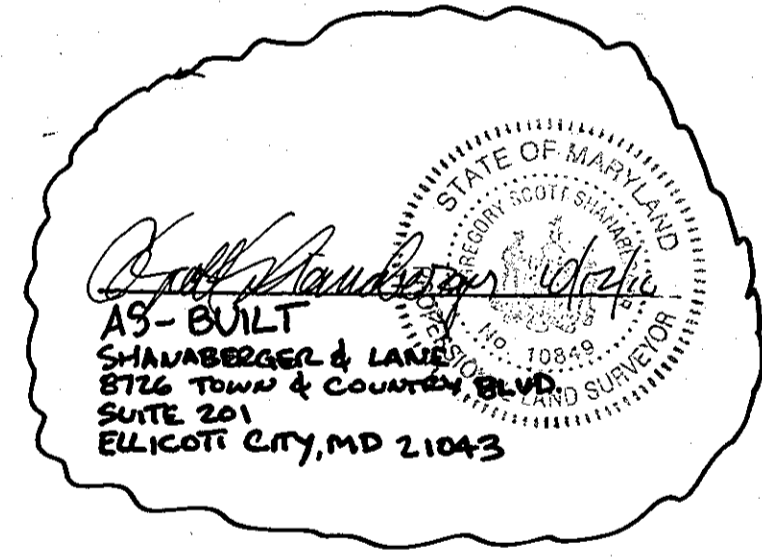 STATE OF MARYLAND
GREGORY SCOTT SHANABERGER
No. 10849
PROFESSIONAL LAND SURVEYOR
AS-BUILT
SHANABERGER & LANE
8726 TOWN & COUNTRY BLVD.
SUITE 201
ELLICOTT CITY, MD 21043